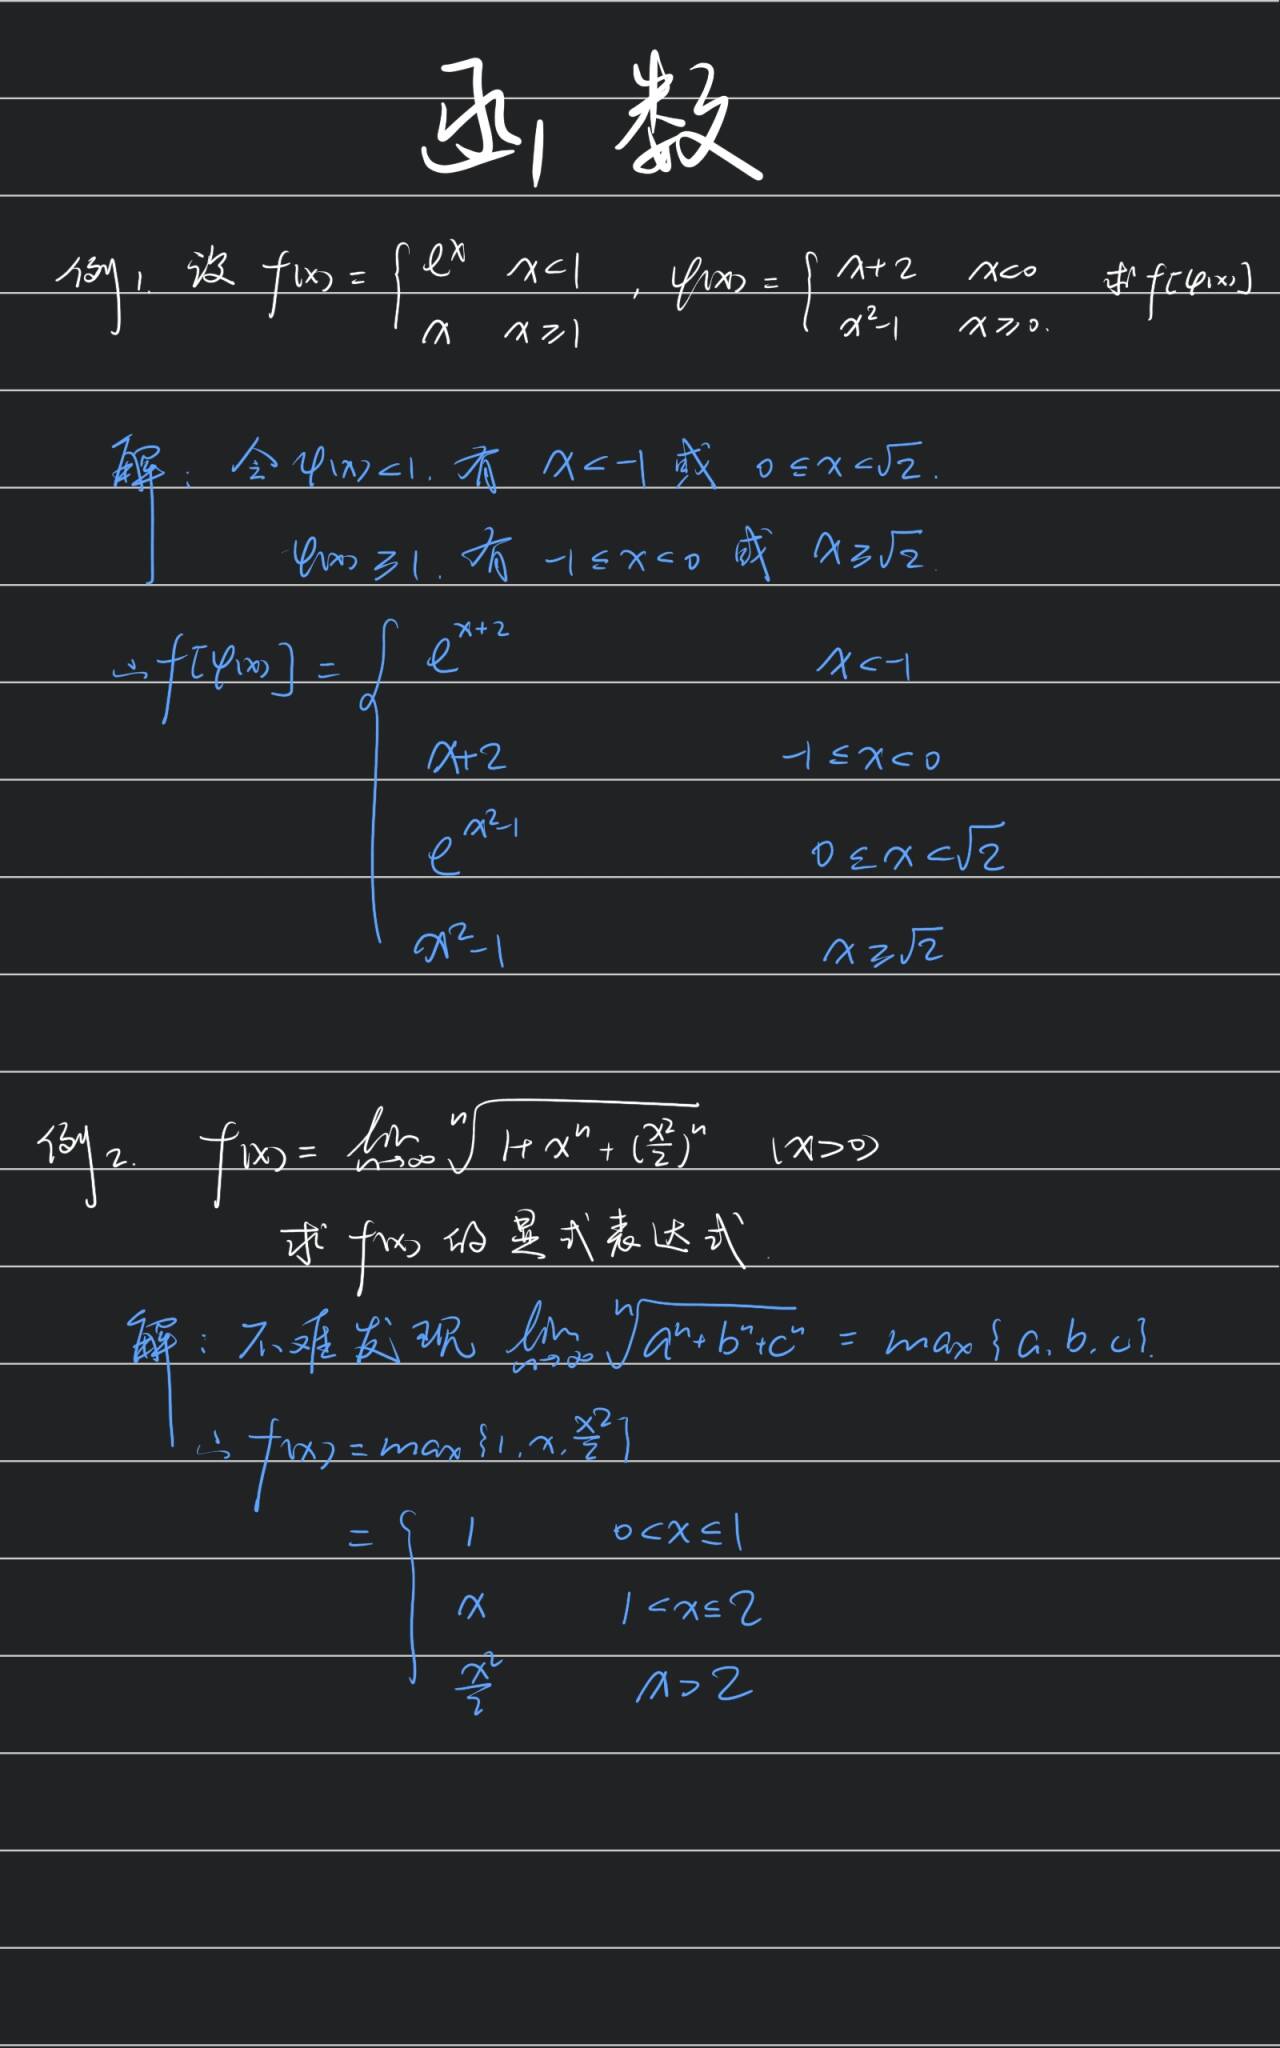 函数
例1. 设 f(x) = { e^x x<1 , φ(x) = { x+2 x<0 求 f[φ(x)]
x x≥1 x²-1 x≥0.
解: 令 φ(x)<1. 有 x<-1 或 0≤x<√2.
φ(x)≥1. 有 -1≤x<0 或 x≥√2.
∴ f[φ(x)] = { e^(x+2) x<-1
x+2 -1≤x<0
e^(x²-1) 0≤x<√2
x²-1 x≥√2
例2. f(x) = lim n→∞ ⁿ√(1+x^n+(x²/2)^n) (x>0)
求 f(x) 的显式表达式.
解: 不难发现 lim n→∞ ⁿ√(a^n+b^n+c^n) = max{a.b.c}.
∴ f(x) = max{1.x.x²/2}
= { 1 0<x≤1
x 1<x≤2
x²/2 x>2